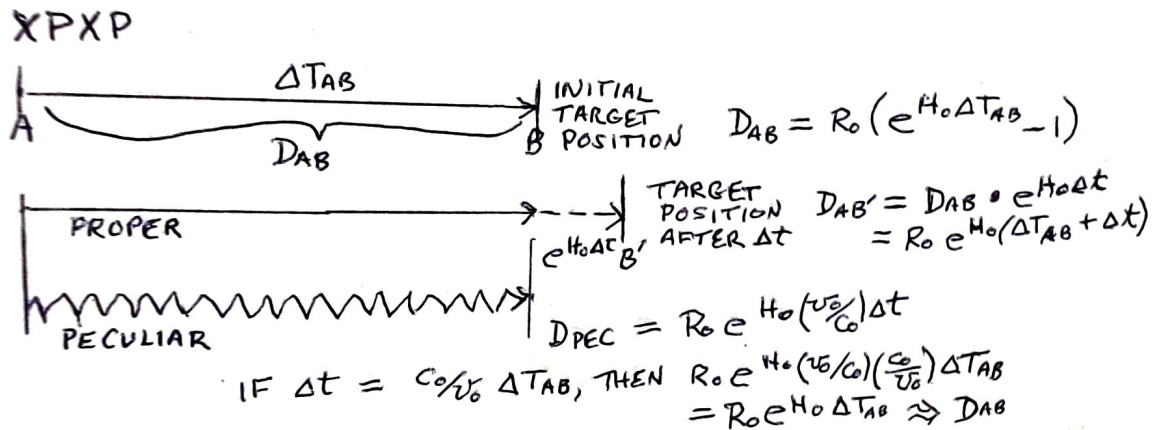 XPXP
ΔT_AB
A
D_AB
B
INITIAL
TARGET
POSITION
D_AB = R₀(e^{H₀ΔT_AB} − 1)
PROPER
e^{H₀Δt}
B'
TARGET
POSITION
AFTER Δt
D_AB' = D_AB • e^{H₀Δt}
= R₀ e^{H₀(ΔT_AB + Δt)}
PECULIAR
D_PEC = R₀ e^{H₀(v₀/c₀)Δt}
IF Δt = c₀/v₀ ΔT_AB, THEN R₀ e^{H₀(v₀/c₀)(c₀/v₀)ΔT_AB}
= R₀ e^{H₀ΔT_AB} ⇒ D_AB